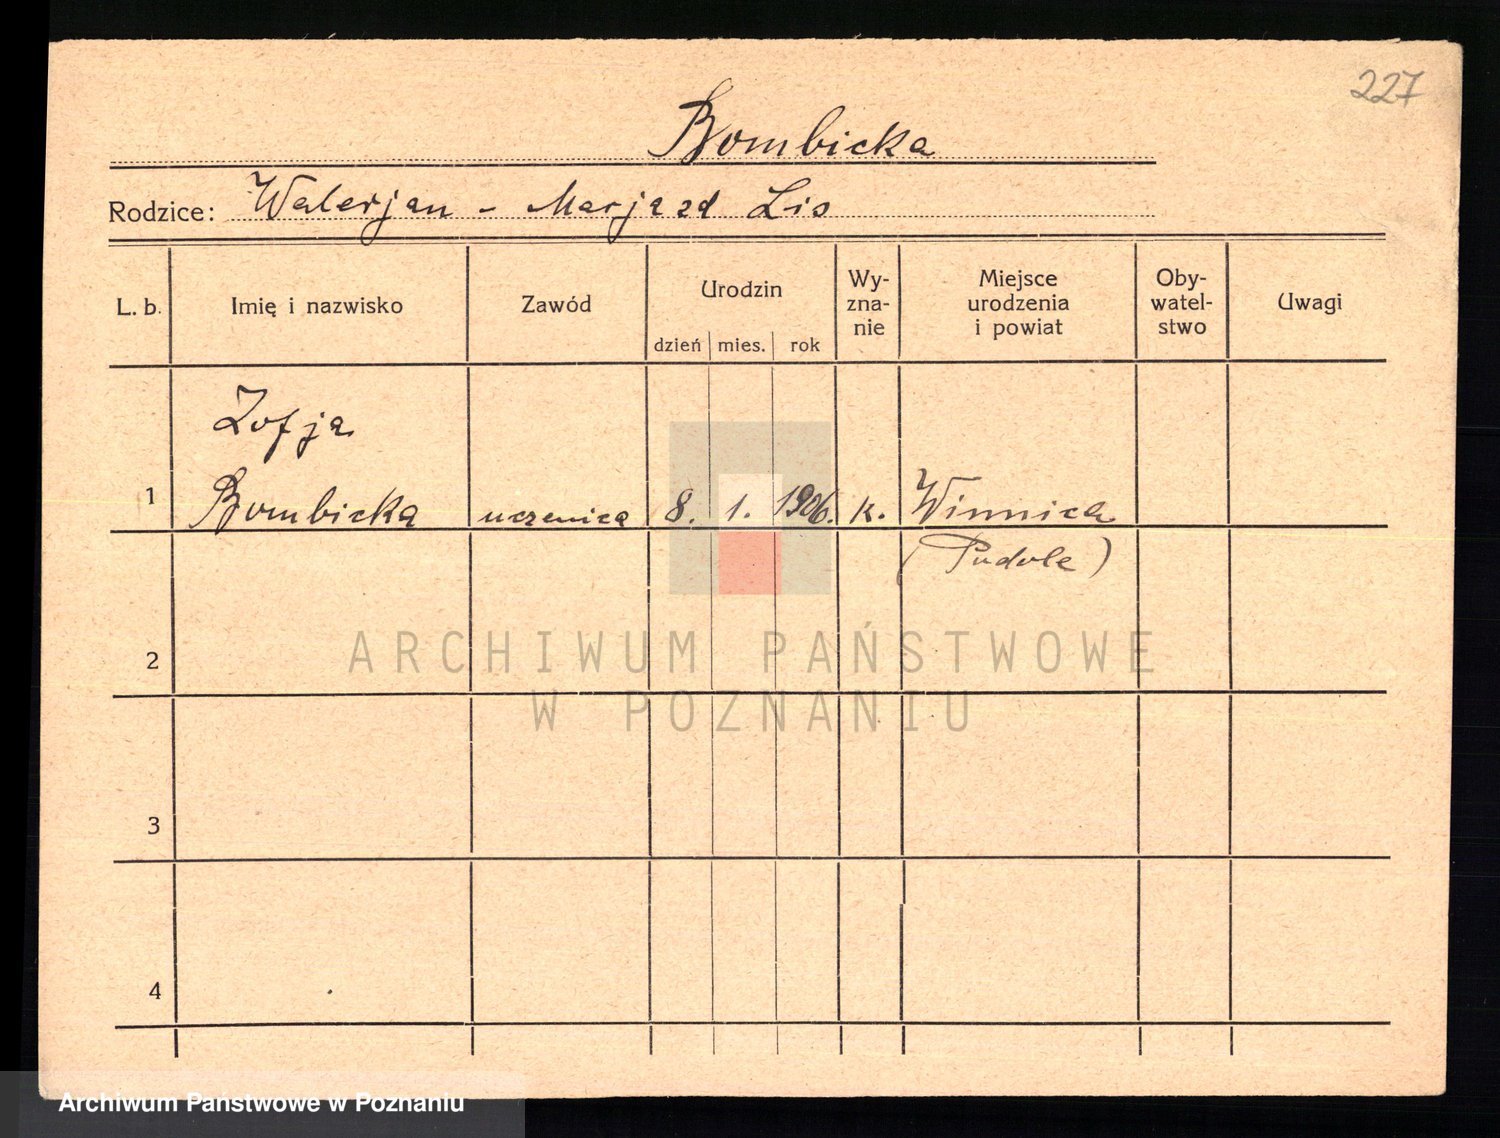 227
Bombicka
Rodzice: Walerjan - Marja zd Lis
L. b. Imię i nazwisko Zawód Urodzin dzień mies. rok Wy-zna-nie Miejsce urodzenia i powiat Oby-watel-stwo Uwagi
Zofja
1 Bombicka uczenica 8. 1. 1906. k. Winnica
(Podole)
2
ARCHIWUM PAŃSTWOWE
W POZNANIU
3
4
Archiwum Państwowe w Poznaniu